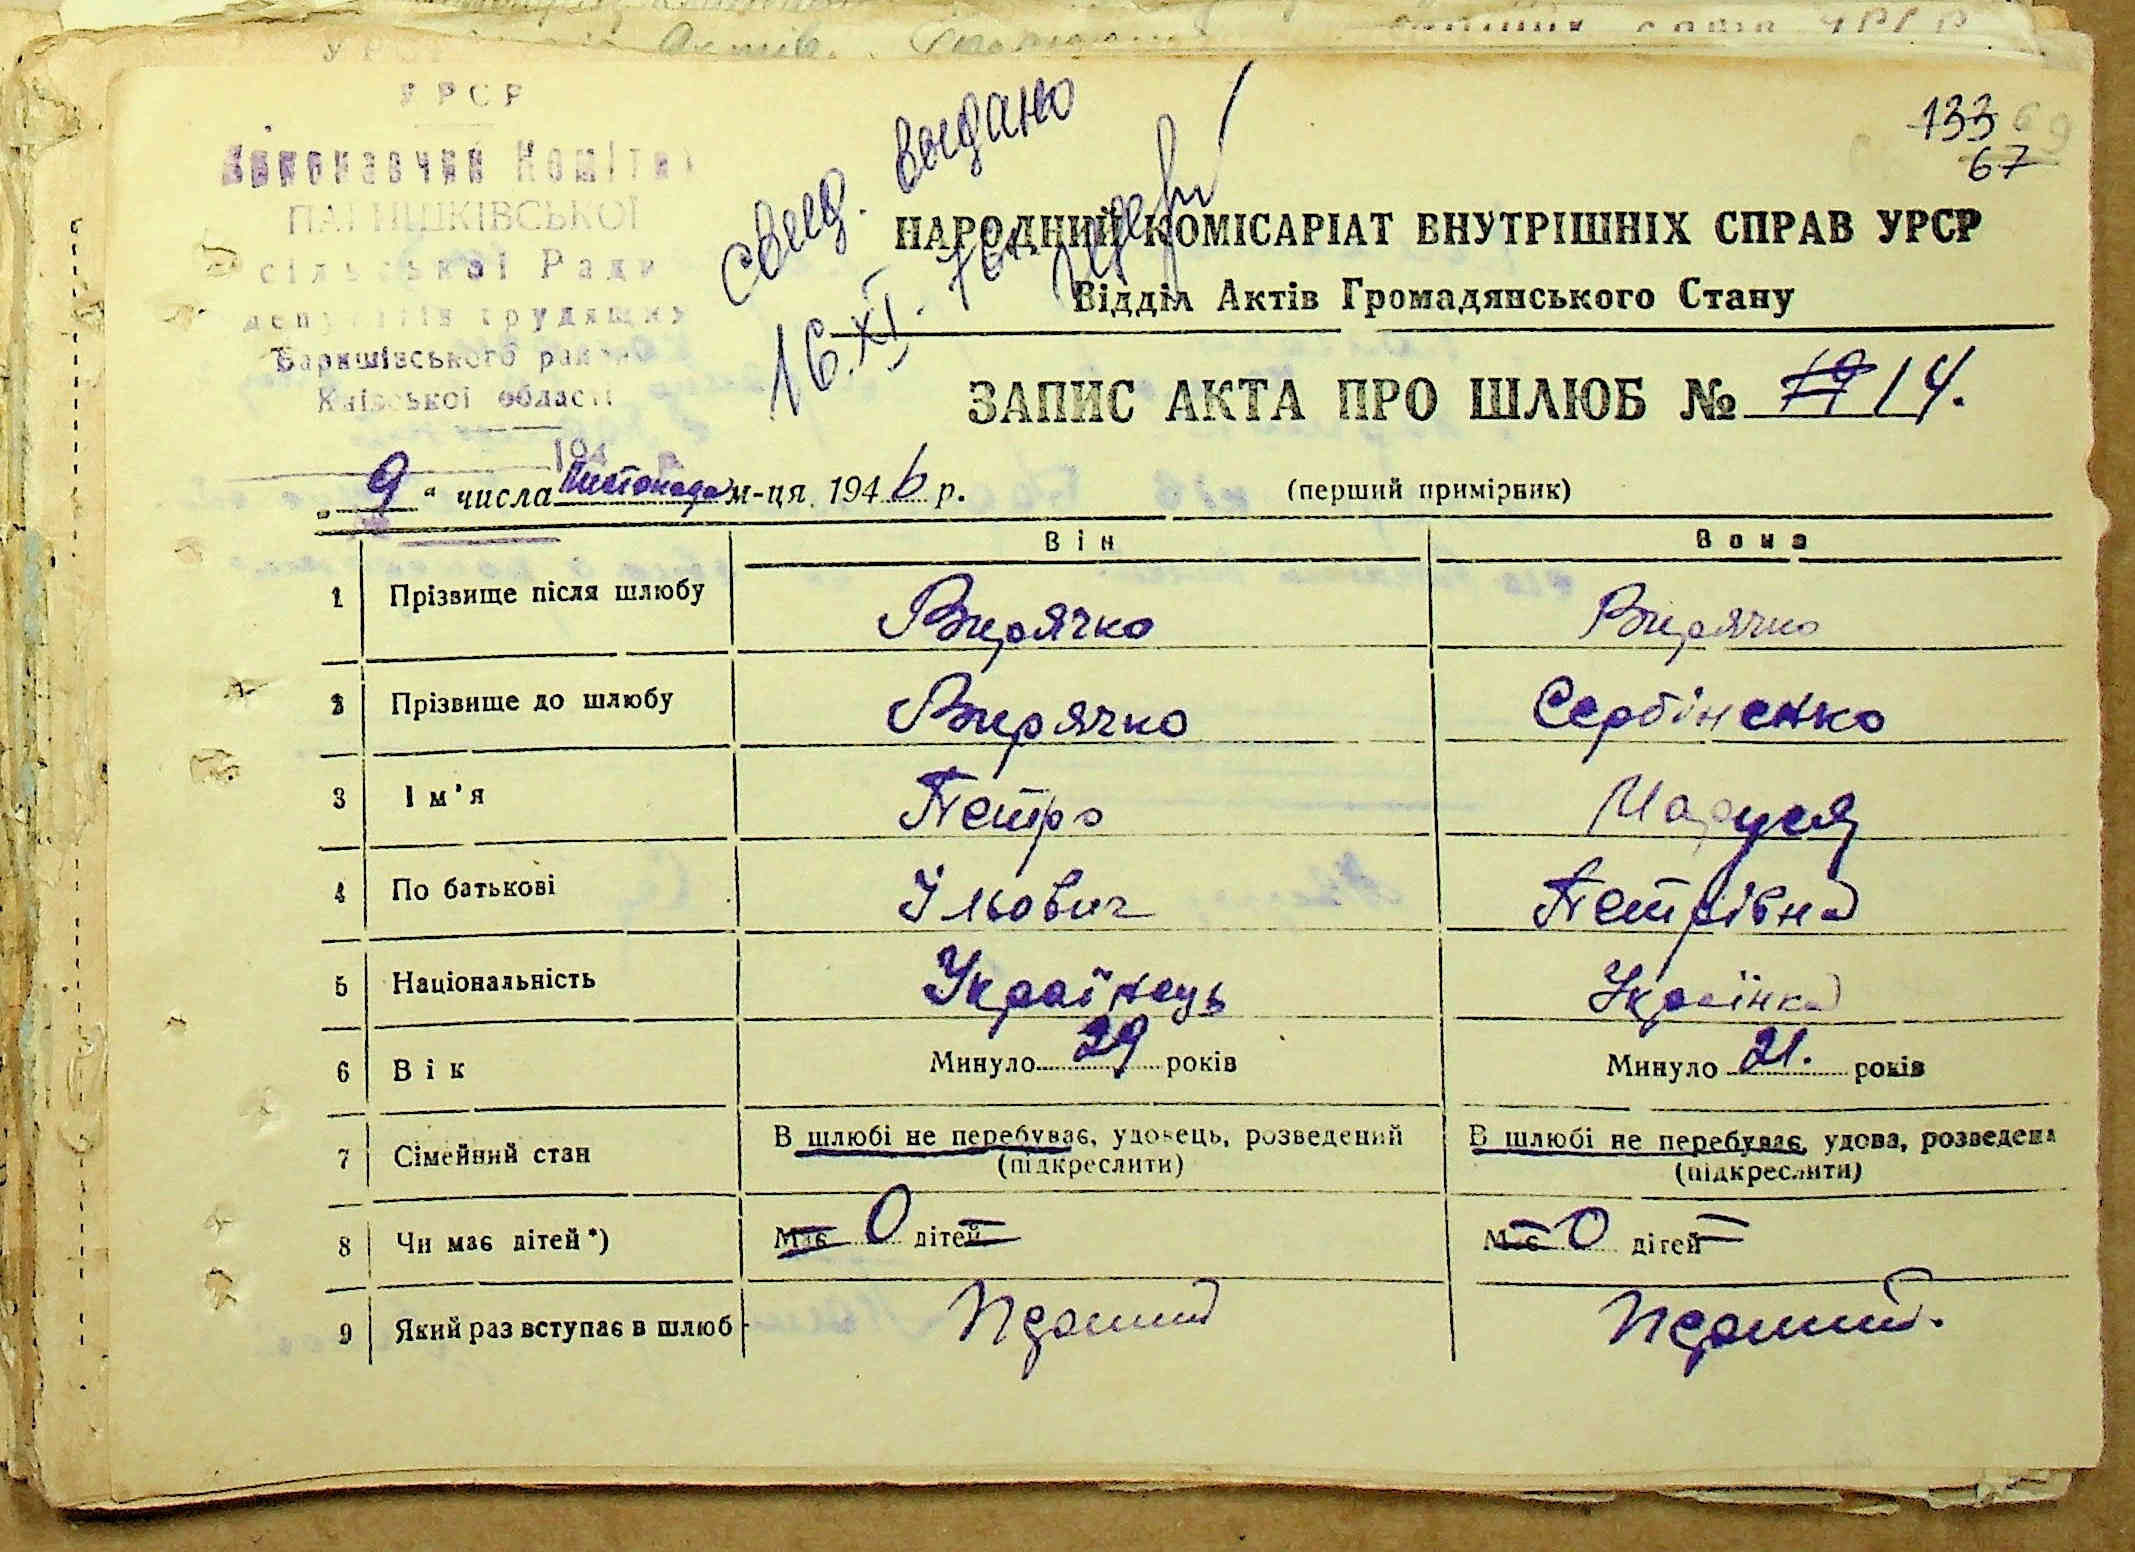 УРСР
Виконавчий Комітет
ПАРИШКІВСЬКОЇ
сільської Ради
депутатів трудящих
Баришівського району
Київської області
194
133
67
свид. выдано
16.XI.
НАРОДНИЙ КОМІСАРІАТ ВНУТРІШНІХ СПРАВ УРСР
Відділ Актів Громадянського Стану
ЗАПИС АКТА ПРО ШЛЮБ № 14.
„ 9 “ числа листопада м-ця 1946 р. (перший примірник)
Він Вона
1 Прізвище після шлюбу Вирячко Вирячко
2 Прізвище до шлюбу Вирячко Сербіненко
3 Ім’я Петро Маруся
4 По батькові Ільович Петрівна
5 Національність Українець Українка
6 Вік Минуло 29 років Минуло 21. років
7 Сімейний стан В шлюбі не перебуває, удовець, розведений В шлюбі не перебуває, удова, розведена
(підкреслити) (підкреслити)
8 Чи має дітей*) Має 0 дітей Має 0 дітей
9 Який раз вступає в шлюб Перший Перший.